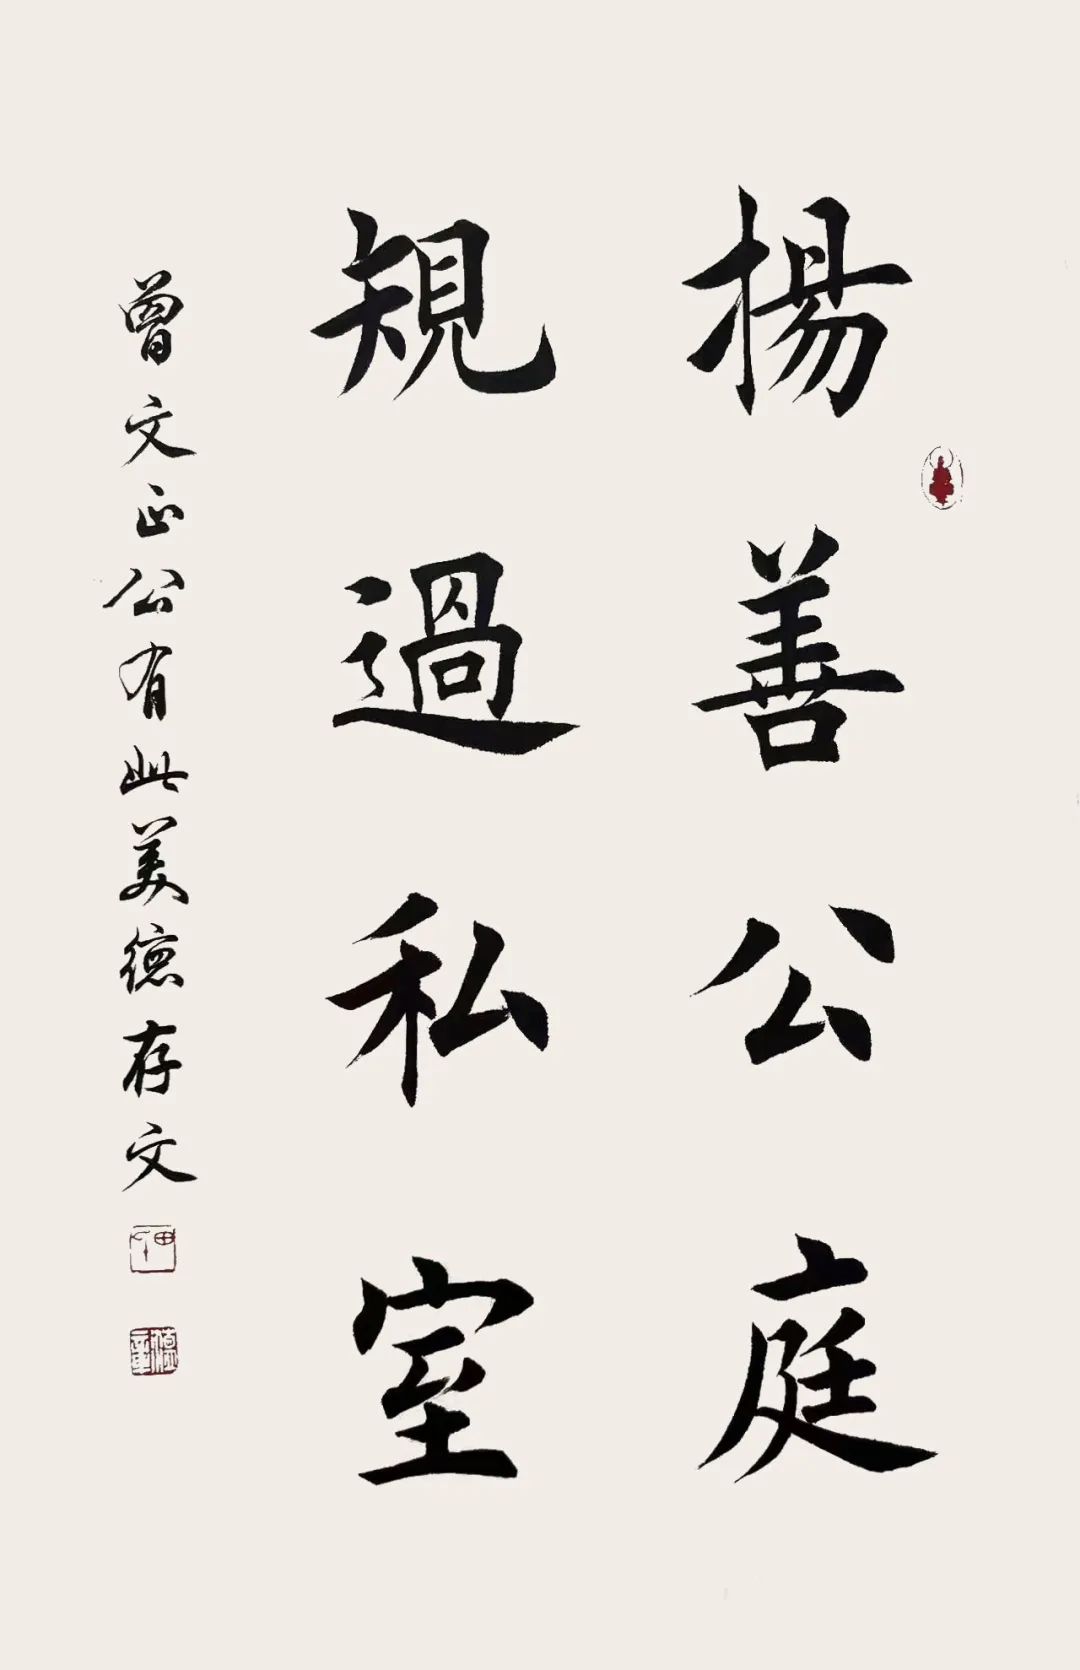 揚善公庭
規過私室
曾文正公有此美德存文